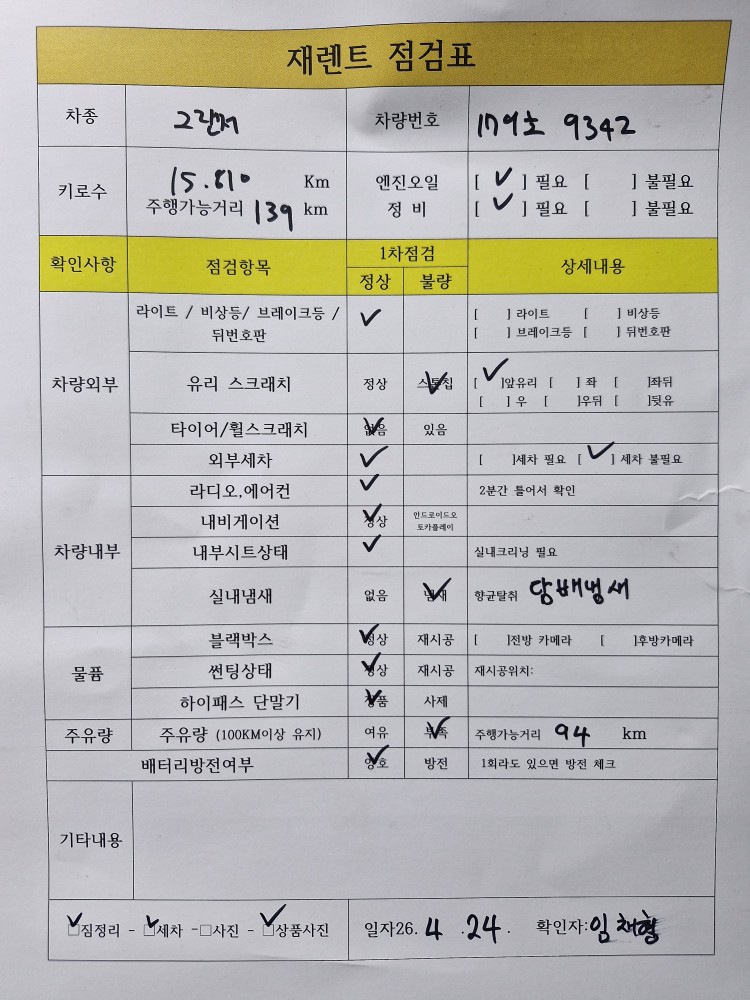 재렌트 점검표
차종 그랜저 차량번호 179호 9342
키로수 15.810 Km 엔진오일 [ ✓ ] 필요 [ ] 불필요
주행가능거리 139 km 정 비 [ ✓ ] 필요 [ ] 불필요
확인사항 점검항목 1차점검 상세내용
정상 불량
차량외부 라이트 / 비상등/ 브레이크등 / ✓ [ ] 라이트 [ ] 비상등
뒤번호판 [ ] 브레이크등 [ ] 뒤번호판
유리 스크래치 정상 스톤칩 ✓ [ ✓ ]앞유리 [ ] 좌 [ ]좌뒤
[ ] 우 [ ]우뒤 [ ]뒷유
타이어/휠스크래치 없음 ✓ 있음
외부세차 ✓ [ ]세차 필요 [ ✓ ] 세차 불필요
차량내부 라디오,에어컨 ✓ 2분간 틀어서 확인
내비게이션 정상 ✓ 안드로이드오
토카플레이
내부시트상태 ✓ 실내크리닝 필요
실내냄새 없음 냄새 ✓ 향균탈취 담배냄새
물품 블랙박스 정상 ✓ 재시공 [ ]전방 카메라 [ ]후방카메라
썬팅상태 정상 ✓ 재시공 재시공위치:
하이패스 단말기 정품 ✓ 사제
주유량 주유량 (100KM이상 유지) 여유 부족 ✓ 주행가능거리 94 km
배터리방전여부 양호 ✓ 방전 1회라도 있으면 방전 체크
기타내용
✓ □짐정리 - ✓ □세차 -□사진 - ✓ □상품사진 일자26. 4 .24. 확인자:임채형